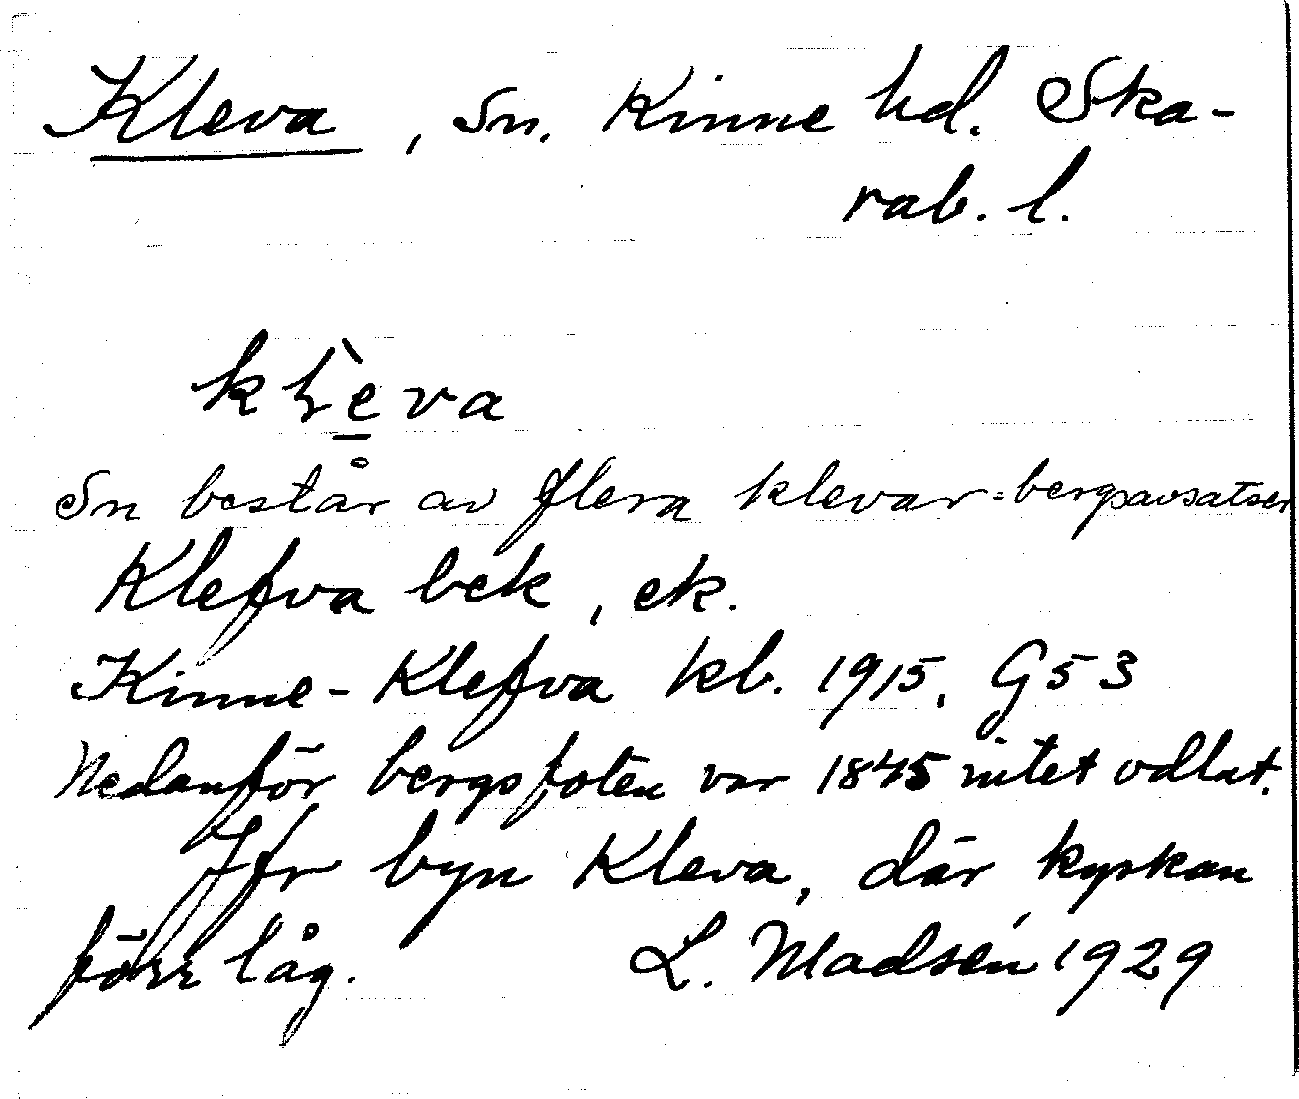 Kleva, Sn. Kinne hd. Ska-
rab. l.
klè̱va
Sn består av flera klevar = bergsavsatser
Klefva bek, ek.
Kinne-Klefva kb. 1915. G53
Nedanför bergsfoten var 1845 intet odlat.
Jfr byn Kleva, där kyrkan
förr låg. L. Madsén 1929